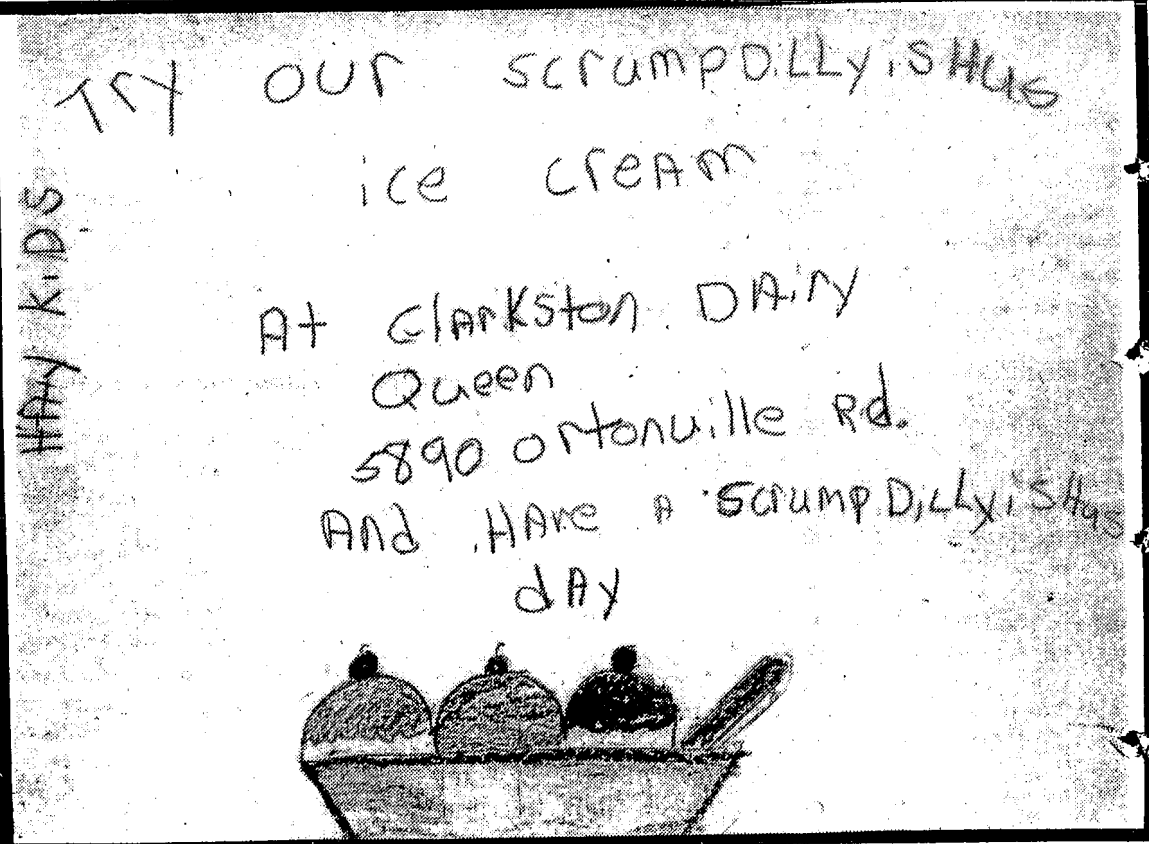 HAY KiDS
Try our scrumpDiLLyiSHus
ice creAm
At ClArkston DAiry
Queen
5890 ortonville Rd.
And HAve A scrumpDiLLyiSHus
dAy